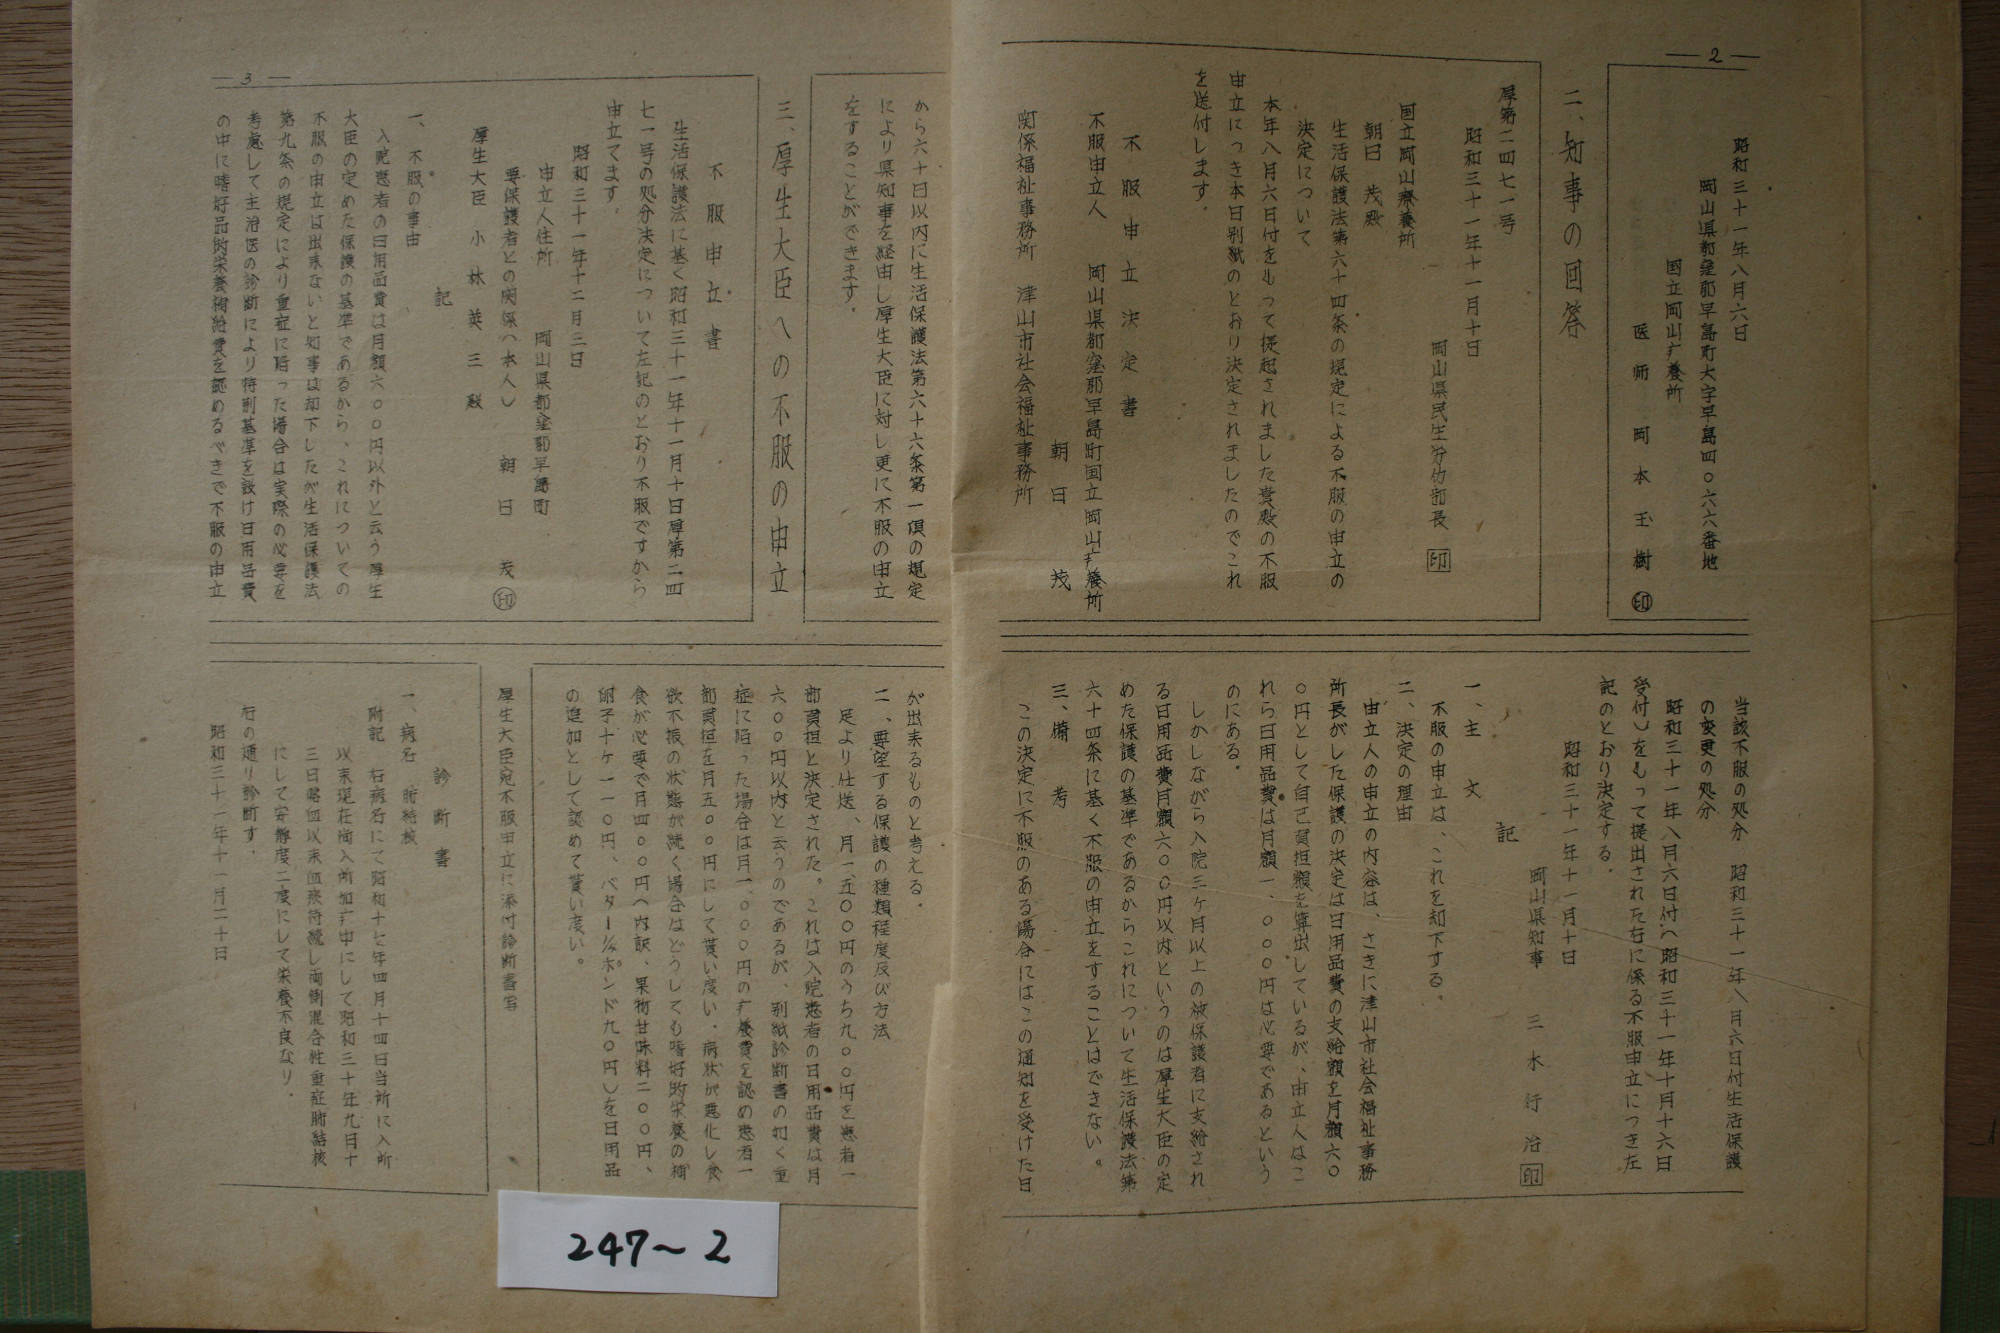 ― 2 ―
昭和三十一年八月六日
岡山県都窪郡早島町大字早島四〇六六番地
国立岡山疒養所
医師 岡本玉樹 ㊞
二、知事の回答
厚第二四七一号
昭和三十一年十一月十日
岡山県民生労仂部長 印
国立岡山療養所
朝日 茂殿
生活保護法第六十四条の規定による不服の申立の
決定について
本年八月六日付をもって提起されました貴殿の不服
申立につき本日別紙のとおり決定されましたのでこれ
を送付します。
不服申立決定書
不服申立人 岡山県都窪郡早島町国立岡山疒養所
朝日 茂
関係福祉事務所 津山市社会福祉事務所
当該不服の処分 昭和三十一年八月六日付生活保護
の変更の処分
昭和三十一年八月六日付(昭和三十一年十月十六日
受付)をもって提出された右に係る不服申立につき左
記のとおり決定する。
昭和三十一年十一月十日
岡山県知事 三木行治 印
記
一、主文
不服の申立は、これを却下する。
二、決定の理由
申立人の申立の内容は、さきに津山市社会福祉事務
所長がした保護の決定は日用品費の支給額を月額六〇
〇円として自己負担額を算出しているが、申立人はこ
れら日用品費は月額一、〇〇〇円は必要であるという
のにある。
しかしながら入院三ヶ月以上の被保護者に支給され
る日用品費月額六〇〇円以内というのは厚生大臣の定
めた保護の基準であるからこれについて生活保護法第
六十四条に基く不服の申立をすることはできない。
三、備考
この決定に不服のある場合にはこの通知を受けた日
― 3 ―
から六十日以内に生活保護法第六十六条第一項の規定
により県知事を経由し厚生大臣に対し更に不服の申立
をすることができます。
三、厚生大臣への不服の申立
不服申立書
生活保護法に基く昭和三十一年十一月十日厚第二四
七一号の処分決定について左記のとおり不服ですから
申立てます。
昭和三十一年十二月三日
申立人住所 岡山県都窪郡早島町
要保護者との関係(本人) 朝日 茂 ㊞
厚生大臣 小林英三殿
記
一、不服の事由
入院患者の日用品費は月額六〇〇円以外と云う厚生
大臣の定めた保護の基準であるから、これについての
不服の申立は出来ないと知事は却下したが生活保護法
第九条の規定により重症に陥った場合は実際の必要を
考慮して主治医の診断により特別基準を設け日用品費
の中に嗜好品的栄養補給費を認めるべきで不服の申立
が出来るものと考える。
二、要望する保護の種類程度及び方法
兄より仕送、月一、五〇〇円のうち九〇〇円を患者一
部負担と決定された。これは入院患者の日用品費は月
六〇〇円以内と云うのであるが、別紙診断書の如く重
症に陥った場合は月一、〇〇〇円の疒養費を認め患者一
部負担を月五〇〇円にして貰い度い。病状が悪化し食
欲不振の状態が続く場合はどうしても嗜好的栄養の補
食が必要で月四〇〇円(内訳、果物甘味料二〇〇円、
卵子十ケ一一〇円、バター1/4ポンド九〇円)を日用品
の追加として認めて貰い度い。
厚生大臣宛不服申立に添付診断書写
診断書
一、病名 肺結核
附記 右病名にて昭和十七年四月十四日当所に入所
以来現在尚入所加疒中にして昭和三十年九月十
三日喀血以来血痰持続し両側混合性重症肺結核
にして安静度二度にして栄養不良なり。
右の通り診断す。
昭和三十一年十一月二十日
247〜2